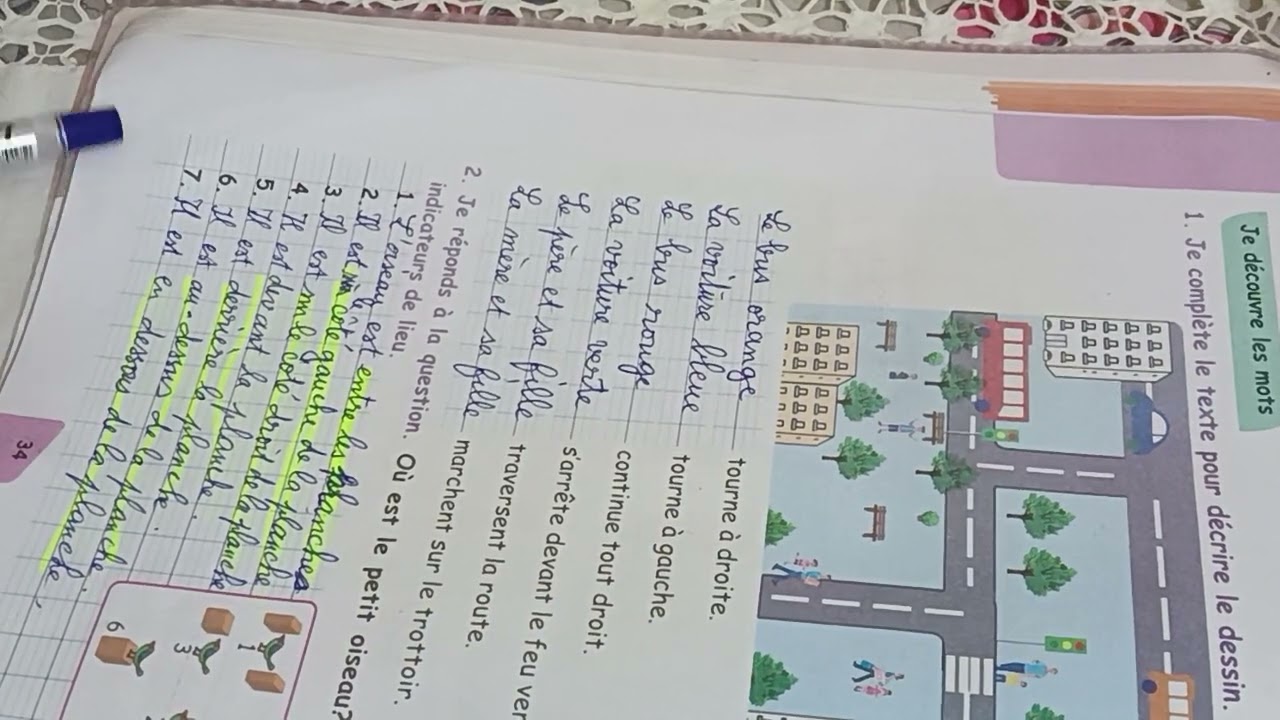 Je découvre les mots
1. Je complète le texte pour décrire le dessin.
Le bus orange tourne à droite.
La voiture bleue tourne à gauche.
Le bus rouge continue tout droit.
La voiture verte s'arrête devant le feu ver
Le père et sa fille traversent la route.
La mère et sa fille marchent sur le trottoir.
2. Je réponds à la question. Où est le petit oiseau?
indicateurs de lieu.
1. L'oiseau est entre les planches
2. Il est côté gauche de la planche
3. Il est sur le côté droit de la planche
4. Il est devant la planche
5. Il est derrière la planche.
6. Il est au-dessus de la planche.
7. Il est en dessous de la planche.
1
3
6
34